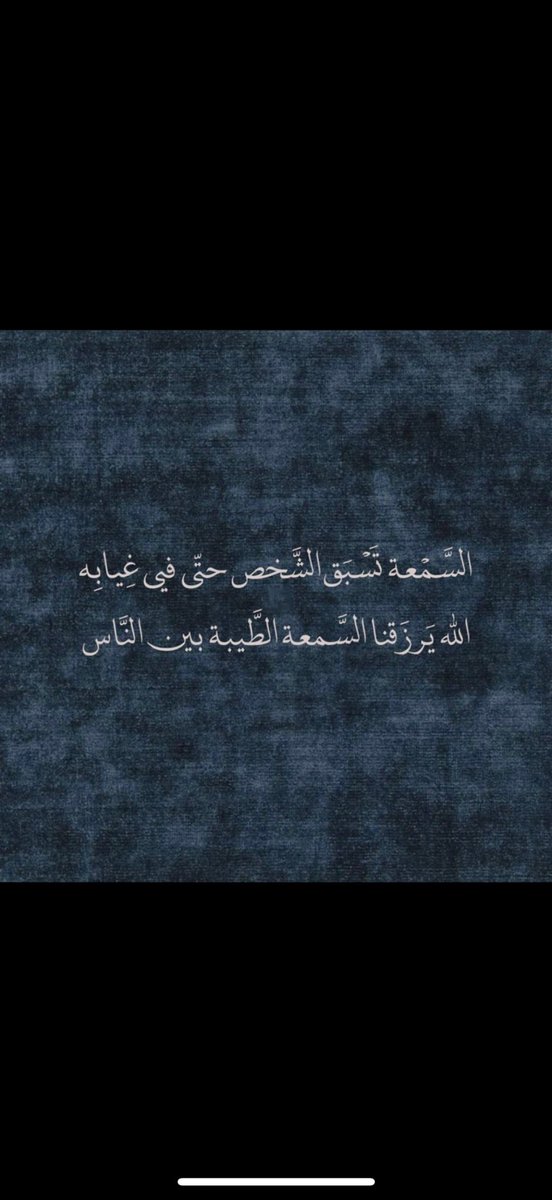 السَّمْعة تَسْبَق الشَّخص حتّى فيي غِيابِه
الله يَرزَقنا السَّمعة الطَّيبة بين النَّاس